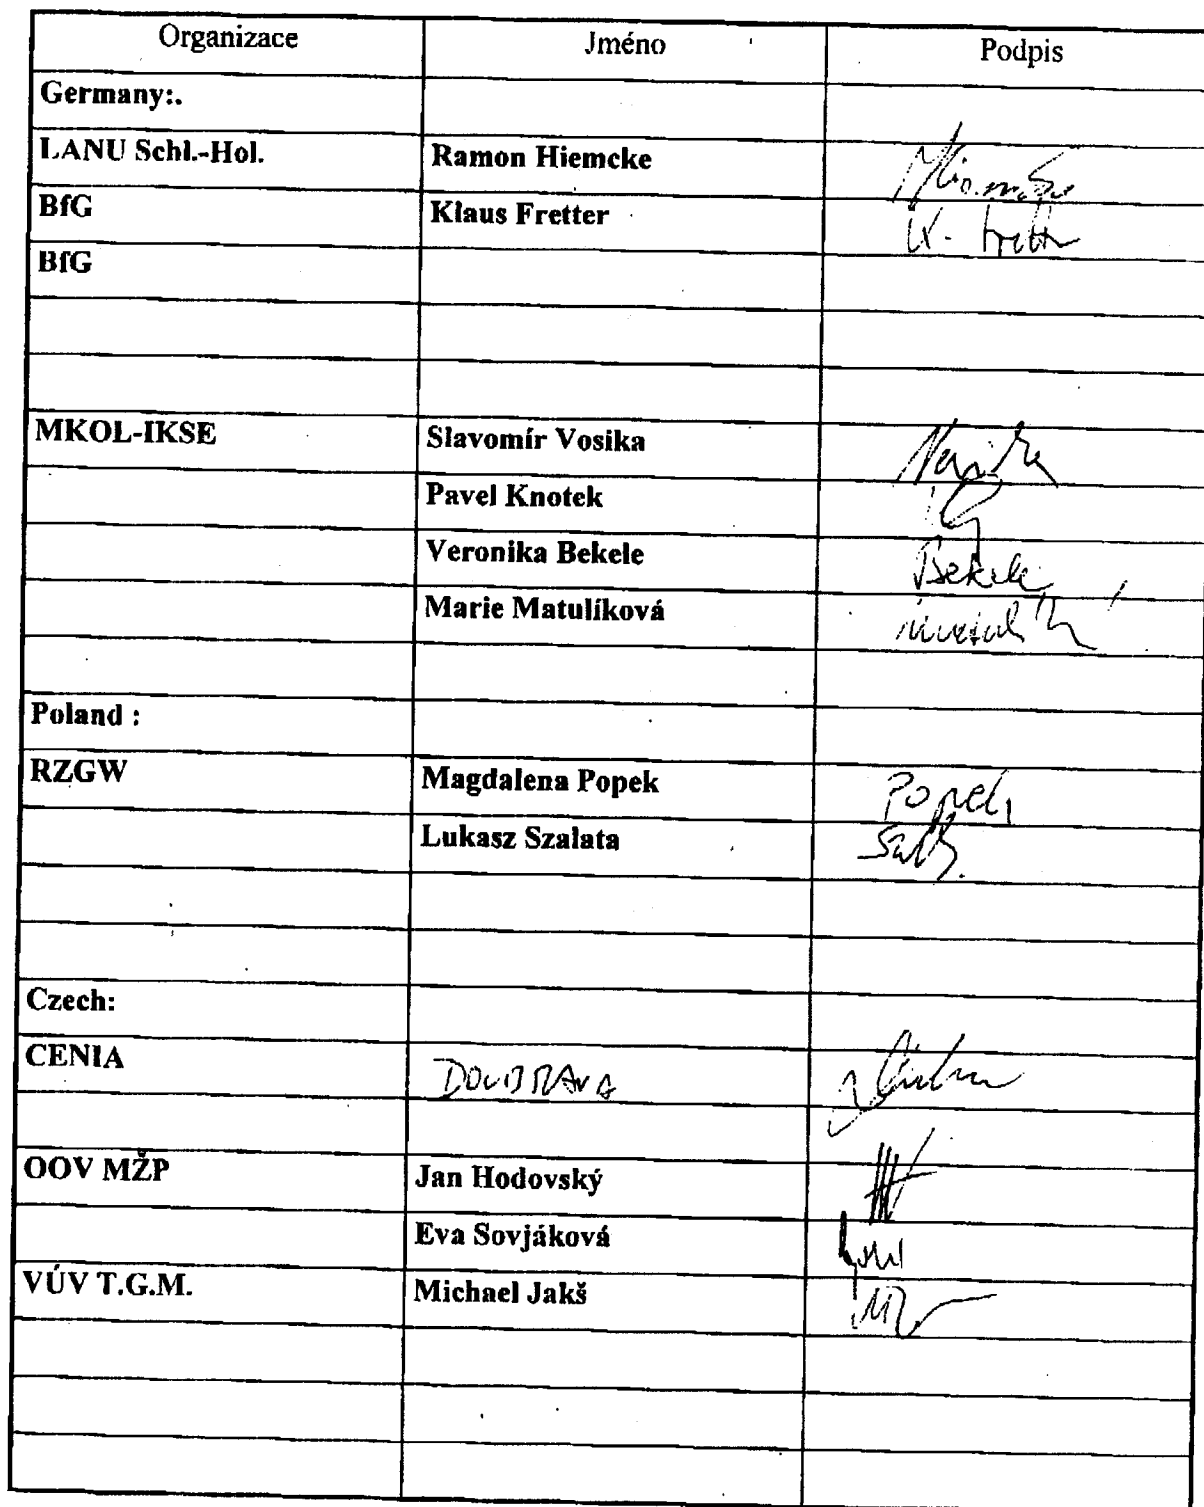 Organizace Jméno Podpis
Germany:.
LANU Schl.-Hol. Ramon Hiemcke
BfG Klaus Fretter K. Fretter
BfG
MKOL-IKSE Slavomír Vosika
Pavel Knotek
Veronika Bekele Bekele
Marie Matulíková
Poland :
RZGW Magdalena Popek Popek
Lukasz Szalata
Czech:
CENIA DOUBRAVA
OOV MŽP Jan Hodovský
Eva Sovjáková
VÚV T.G.M. Michael Jakš